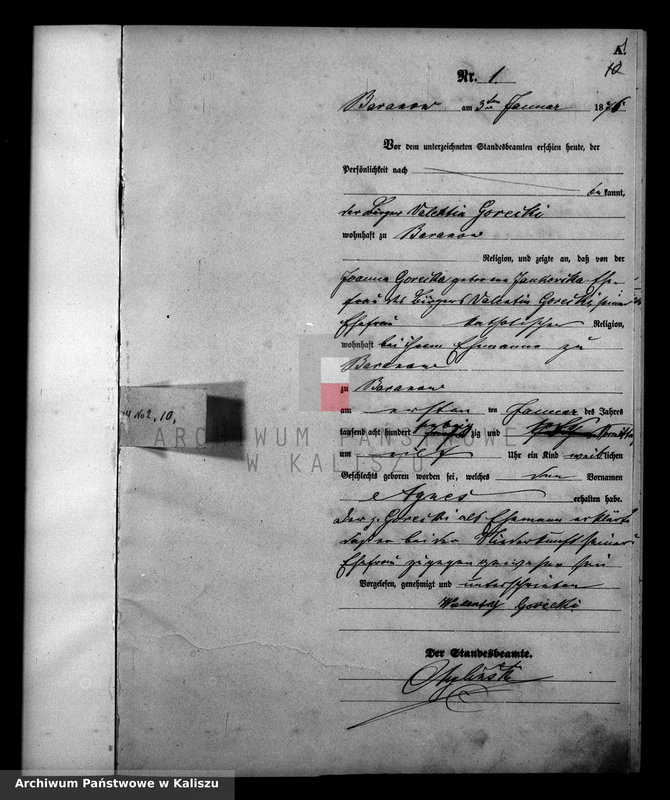 A.
10
Nr. 1.
Baranow am 3ten Januar 1876
Vor dem unterzeichneten Standesbeamten erschien heute, der
Persönlichkeit nach
bekannt,
der Bürger Valentin Gorecki
wohnhaft zu Baranow
Religion, und zeigte an, daß von der
Joanna Gorecka geborene Jankowska Ehe-
frau des Bürgers Valentin Gorecki seiner
Ehefrau katholischer Religion,
wohnhaft bei ihrem Ehemanne zu
Baranow
zu Baranow
am ersten ten Januar des Jahres
tausend acht hundert zig und Vormittag
um Uhr ein Kind weiblichen
Geschlechts geboren worden sei, welches den Vornamen
Agnes erhalten habe.
Der p. Gorecki als Ehemann erklärte
daß er bei der Niederkunft seiner
Ehefrau zugegen gewesen sei
Vorgelesen, genehmigt und unterschrieben
Gorecki
Der Standesbeamte.
No 2, 10,
ARCHIWUM PAŃSTWOWE
W KALISZU
Archiwum Państwowe w Kaliszu